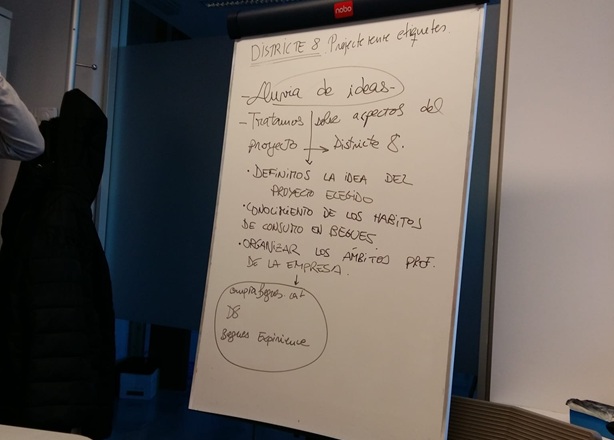 nobo
DISTRICTE 8 Projectem etiquetes.
- Lluvia de ideas -
- Tratamos sobre aspectos del
proyecto → Districte 8.
• DEFINIMOS LA IDEA DEL
PROYECTO ELEGIDO
• CONOCIMIENTO DE LOS HABITOS
DE CONSUMO EN BEGUES
• ORGANIZAR LOS ÁMBITOS PROF.
DE LA EMPRESA.
D8
Begues Experience